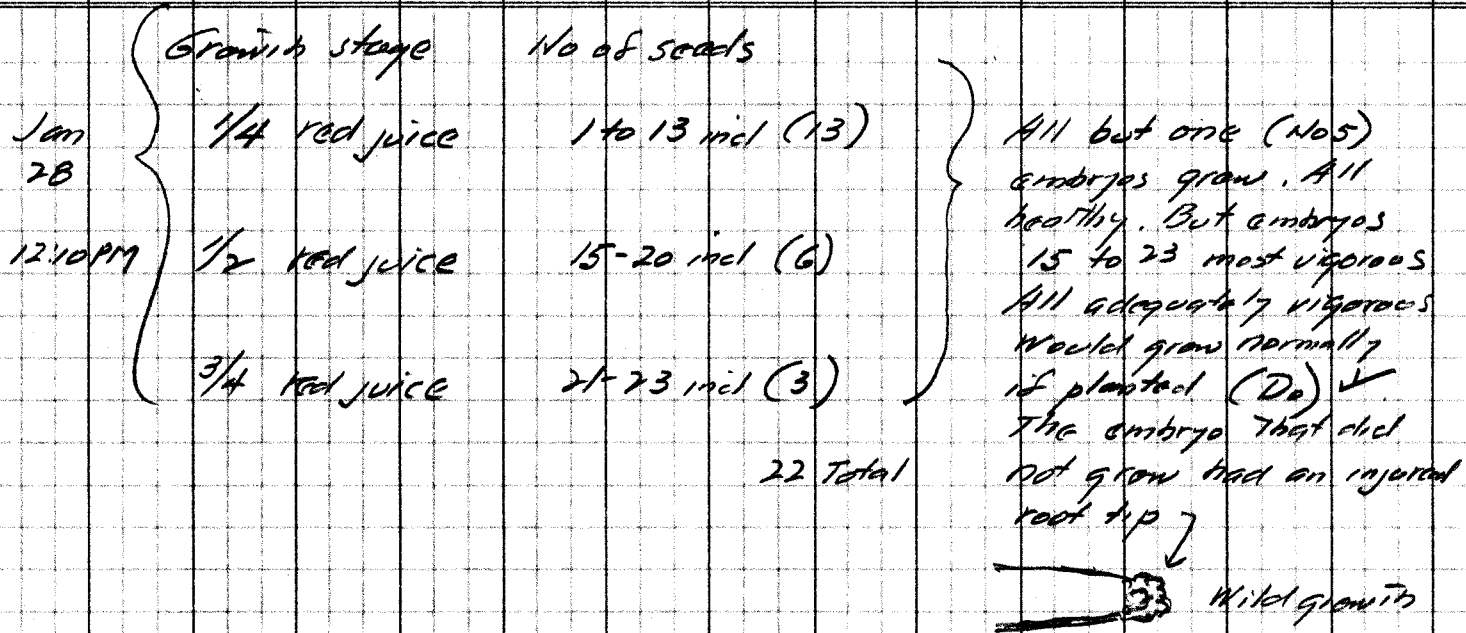 Growth stage No of seeds
Jan 28
12:10PM
1/4 red juice 1 to 13 incl (13)
1/2 red juice 15-20 incl (6)
3/4 red juice 21-23 incl (3)
22 Total
All but one (No5)
embryos grew. All
healthy. But embryos
15 to 23 most vigorous
All adequately vigorous
Would grow normally
if planted (Do) ✓
The embryo that did
not grow had an injured
root tip
Wild growth